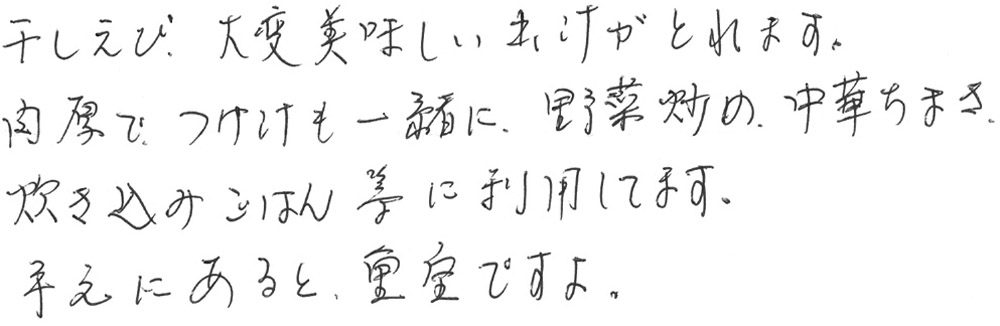 干しえび、大変美味しいお汁がとれます。
肉厚で、つけ汁も一緒に、野菜炒め、中華ちまき、
炊き込みごはん等に利用してます。
手元にあると、重宝ですよ。